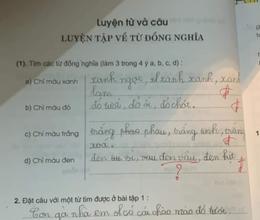 Luyện từ và câu
LUYỆN TẬP VỀ TỪ ĐỒNG NGHĨA
(1). Tìm các từ đồng nghĩa (làm 3 trong 4 ý a, b, c, d) :
a) Chỉ màu xanh xanh ngọc, xanh xanh, xanh
lam
b) Chỉ màu đỏ đỏ tươi, đỏ ối, đỏ chót.
c) Chỉ màu trắng trắng phau phau, trắng tinh, trắng
xoá.
d) Chỉ màu đen đen đen hịt
?
2. Đặt câu với một từ tìm được ở bài tập 1 :
Con gà nhà em có cái mào đỏ tươi.